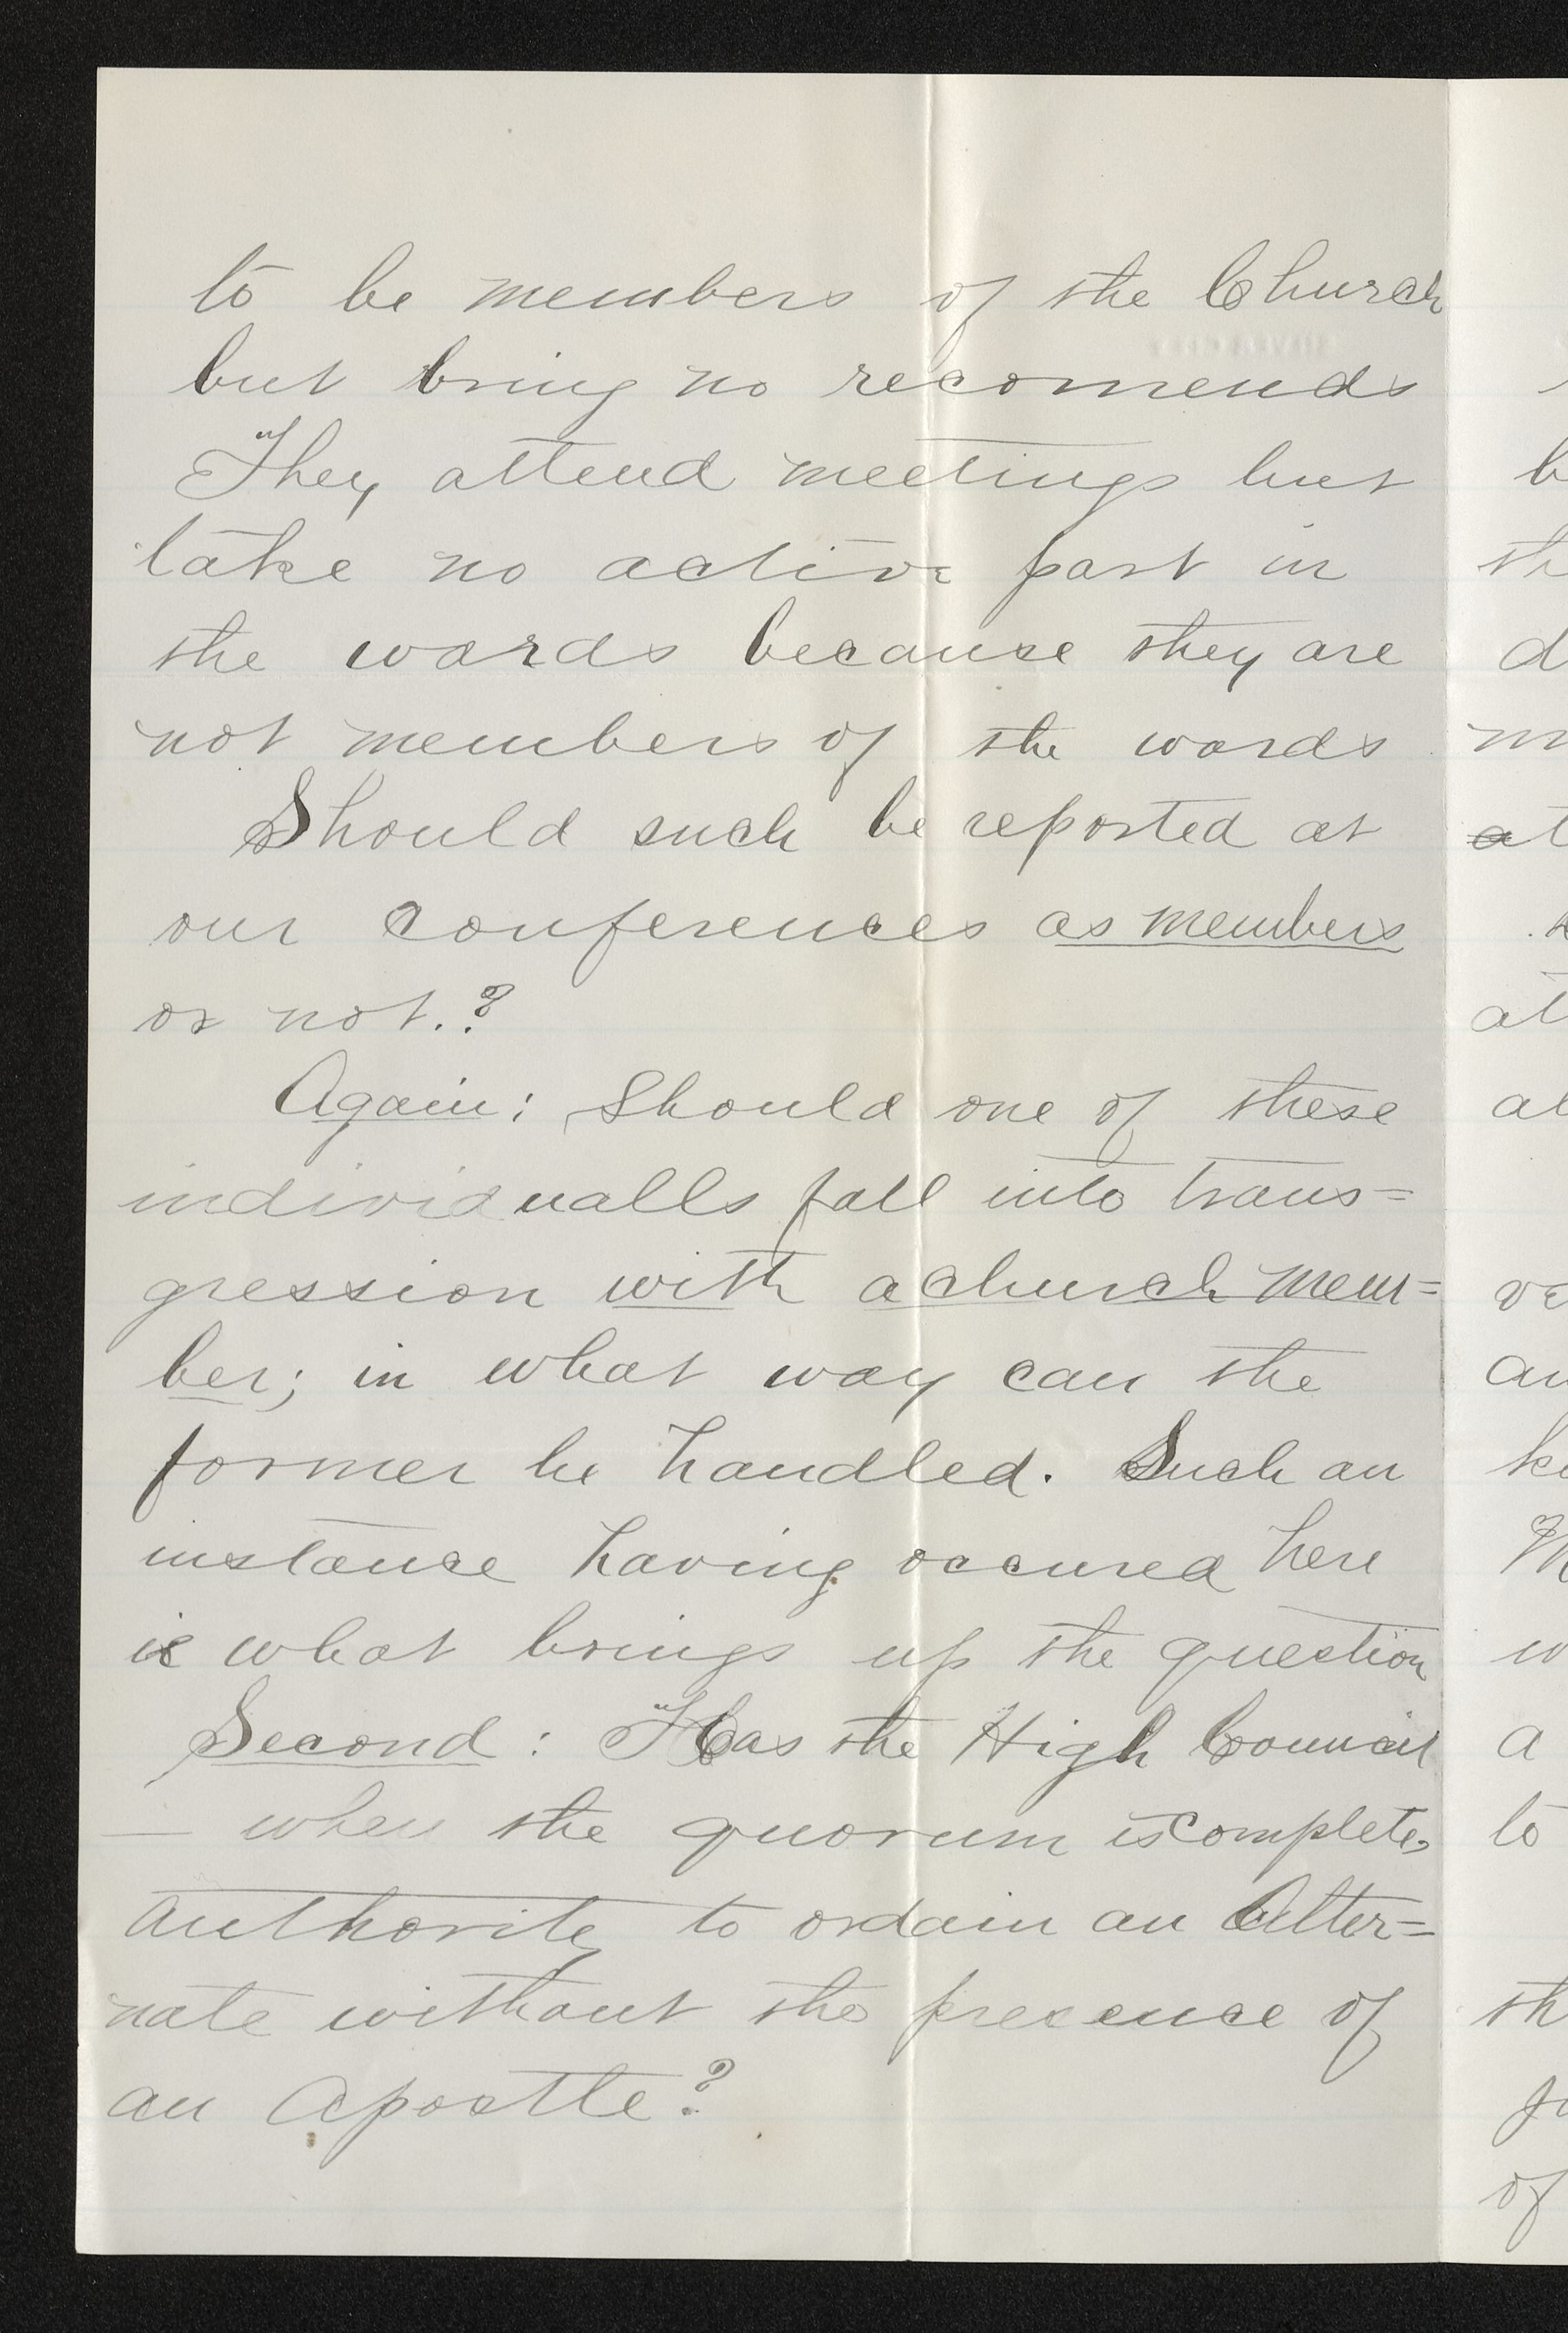 to be members of the Church
but bring no recomends
They attend meetings but
take no active part in
the wards because they are
not members of the wards
Should such be reported at
our conferences as members
or not.?
Again: Should one of these
individualls fall into trans=
gression with a church mem=
ber; in what way can the
former be handled. Such an
instance having occured here
is what brings up the question
Second: Has the High Council
— when the quorum is complete,
authority to ordain an Alter=
nate without the presence of
an Apostle?